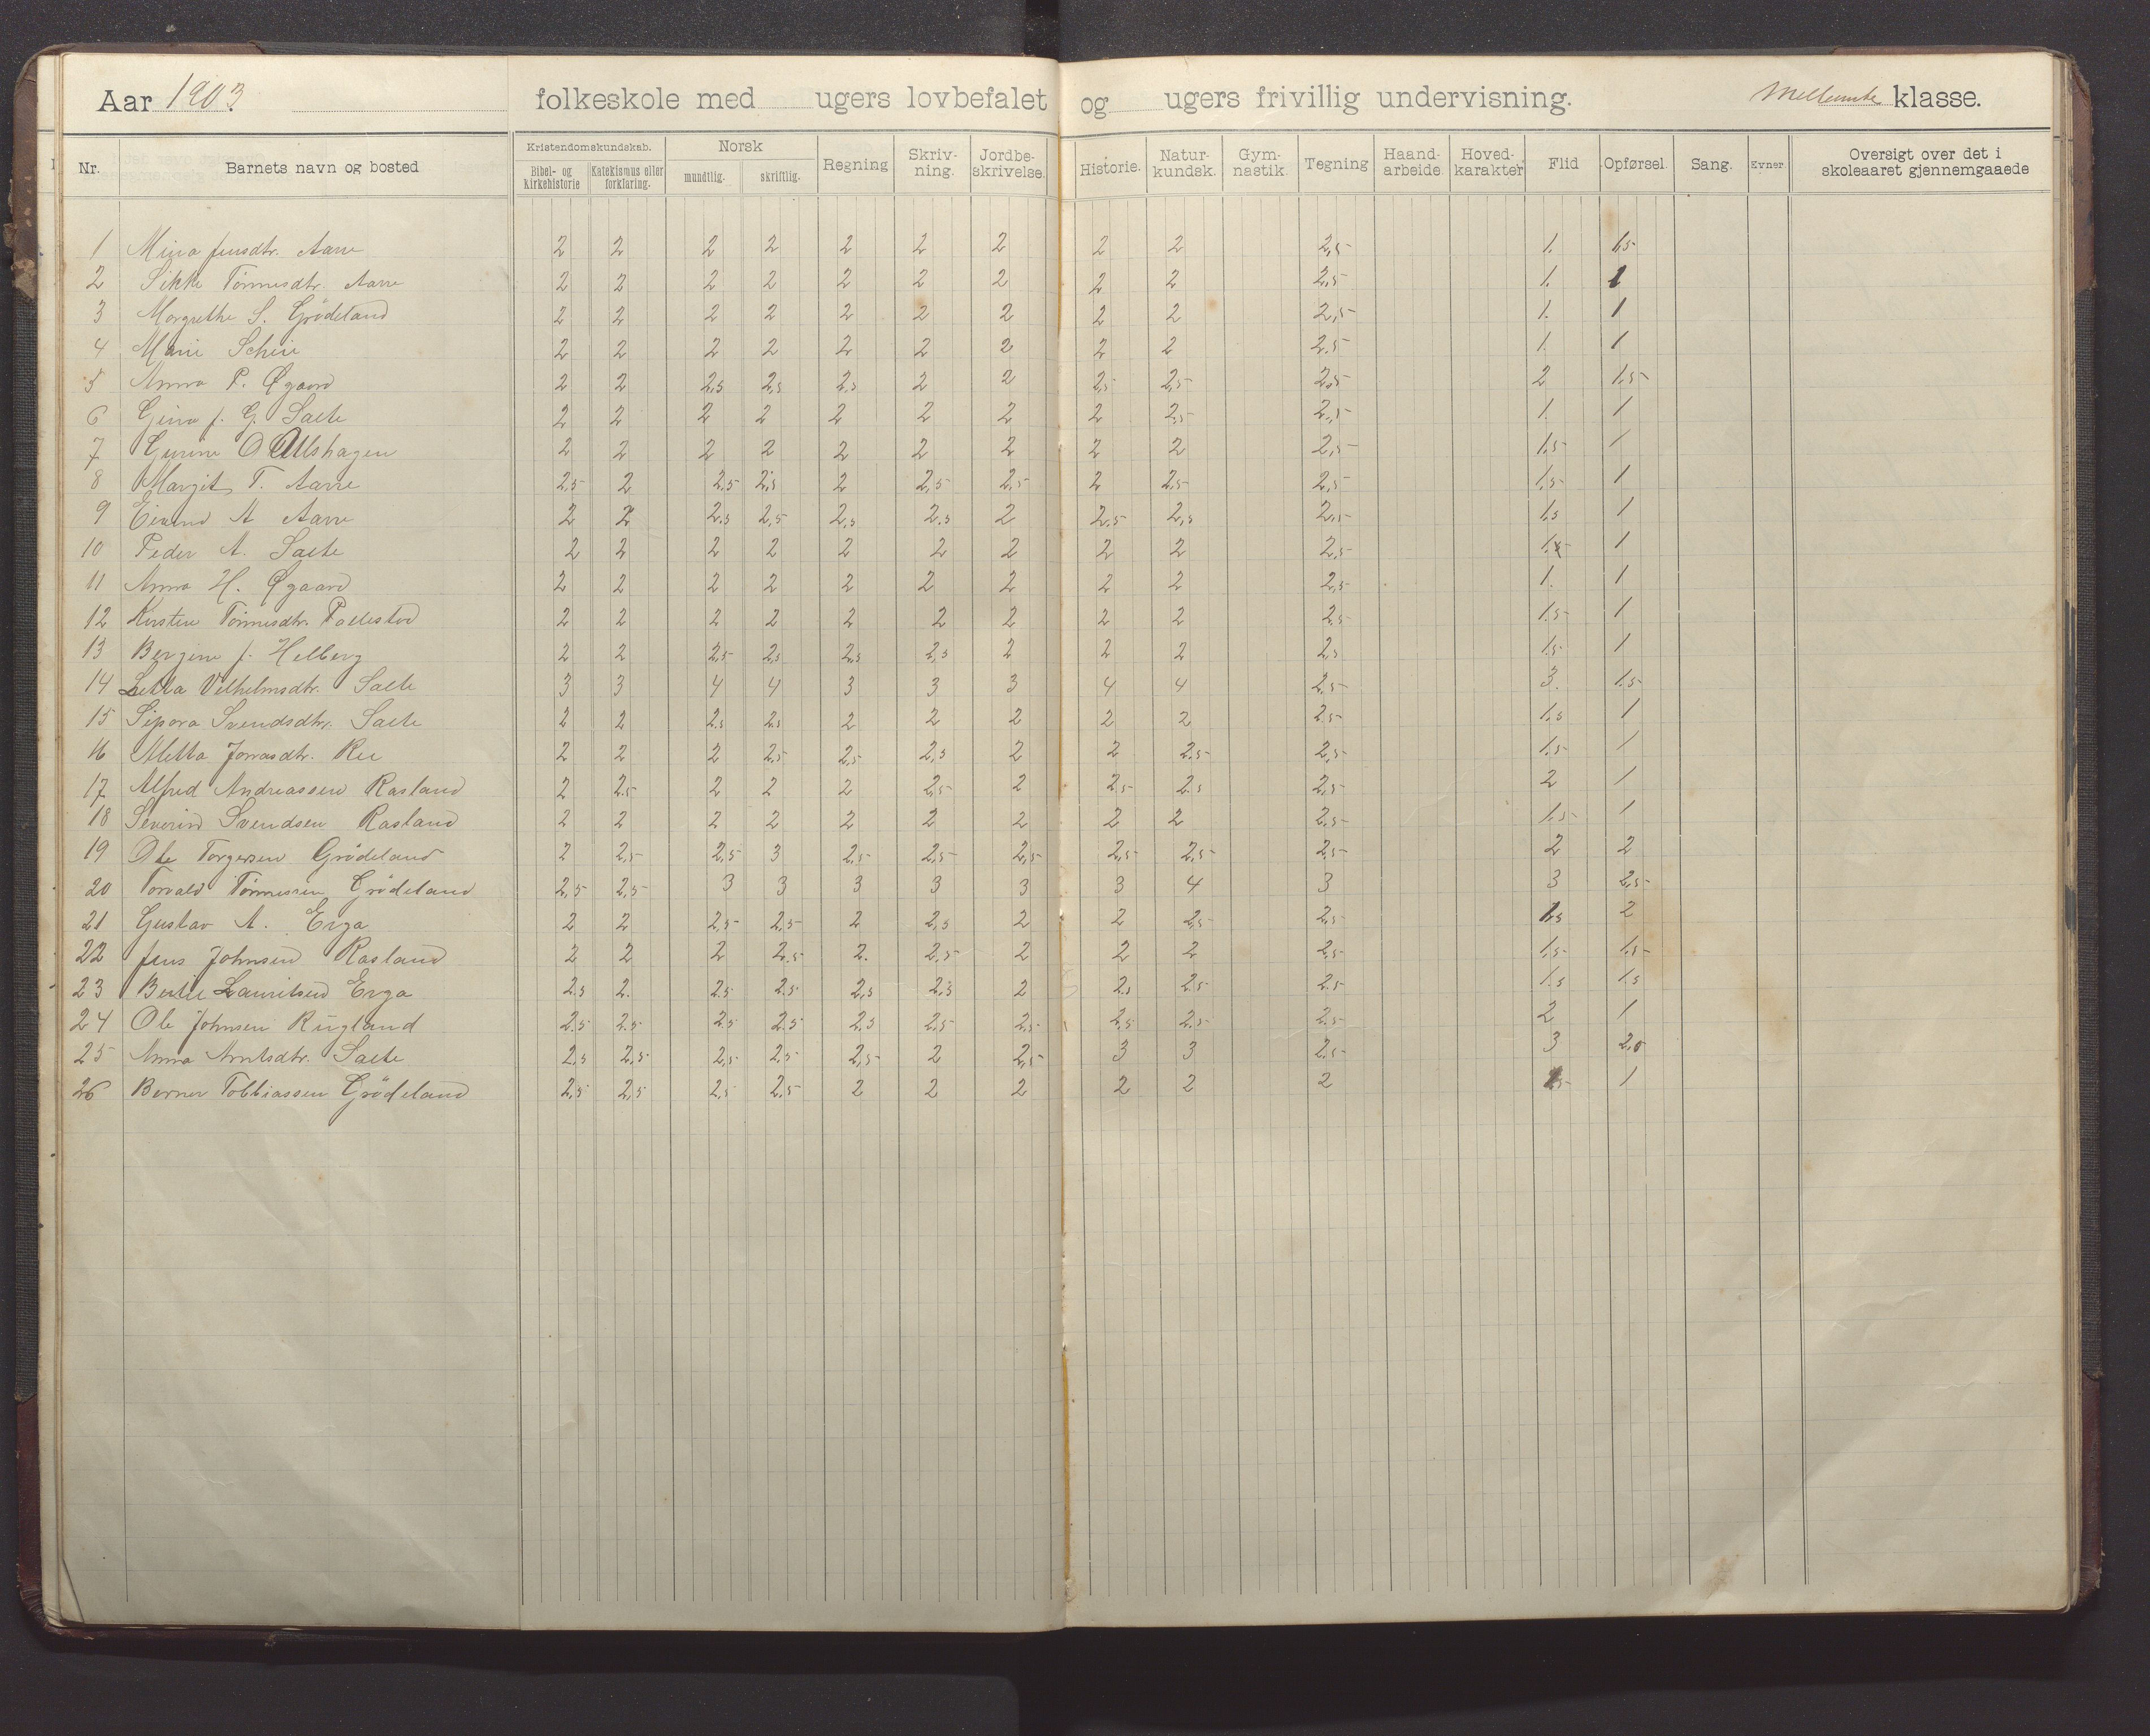 Aar 1903 folkeskole med ugers lovbefalet og ugers frivillig undervisning. Mellemste klasse.
Nr. Barnets navn og bosted Kristendomskundskab. Bibel- og kirkehistorie Katekismus eller forklaring. Norsk mundtlig. skriftlig. Regning Skriv-ning. Jordbe-skrivelse. Historie. Natur-kundsk. Gym-nastik. Tegning Haand-arbeide. Hoved-karakter Flid Opførsel. Sang. Evner Oversigt over det i skoleaaret gjennemgaaede
1 Mina Jensdtr. Aarre 2 2 2 2 2 2 2 2 2 2,5 1. 1.5
2 Sikke Tönnesdtr. Aarre 2 2 2 2 2 2 2 2 2 2,5 1. 1
3 Margrethe S. Grödeland 2 2 2 2 2 2 2 2 2 2,5 1. 1
4 Marie Scheie 2 2 2 2 2 2 2 2 2 2.5 1. 1
5 Anna P. Øgaard 2 2 2,5 2,5 2,5 2 2 2,5 2,5 2,5 2 1.5
6 Gina J. G. Saele 2 2 2 2 2 2 2 2 2,5 2,5 1. 1
7 Gurine O Ullshagen 2 2 2 2 2 2 2 2 2 2,5 1.5 1
8 Margit T. Aarre 2,5 2 2,5 2,5 2 2,5 2,5 2 2,5 2,5 1.5 1
9 Eivind A Aarre 2 2 2.5 2,5 2,5 2.5 2 2,5 2,5 2,5 1.5 1
10 Peder A. Saele 2 2 2 2 2 2 2 2 2 2,5 1.5 1
11 Anna H. Øgaard 2 2 2 2 2 2 2 2 2 2,5 1. 1
12 Kirsten Tönnesdtr. Pollestad 2 2 2 2 2 2 2 2 2 2.5 1.5 1
13 Bergine J. Helberg 2 2 2,5 2,5 2,5 2,5 2 2 2 2,5 1.5 1
14 Vilhelmsdtr. Saele 3 3 4 4 3 3 3 4 4 2,5 3. 1.5
15 Sipora Svendsdtr. Saele 2 2 2.5 2.5 2 2 2 2 2 2.5 1.5 1
16 Metta Jonasdtr. Ree 2 2 2 2.5 2,5 2,5 2 2 2.5 2,5 1.5 1
17 Alfred Andreassen Rasland 2 2.5 2 2 2 2,5 2 2,5 2.5 2,5 2 1
18 Severin Svendsen Rasland 2 2 2 2 2 2 2 2 2 2.5 1.5 1
19 Ole Torgersen Grödeland 2 2,5 2,5 3 2,5 2,5 2,5 2,5 2,5 2,5 2 2
20 Torvald Tönnessen Grödeland 2,5 2,5 3 3 3 3 3 3 4 3 3 2,5
21 Gustav A. Erga 2 2 2,5 2,5 2 2,5 2 2 2,5 2,5 1.5 2
22 Jens Johnsen Rasland 2 2 2 2,5 2. 2,5 2 2 2 2,5 1.5 1.5
23 Lauritsen Erga 2.5 2. 2.5 2.5 2,5 2,5 2 2,5 2.5 2.5 1.5 1.5
24 Ole Johnsen Ringland 2.5 2.5 2.5 2.5 2.5 2.5 2,5 2,5 2.5 2.5 2 1
25 Anna Arntsdtr. Saele 2,5 2,5 2,5 2,5 2,5 2 2,5 3 3 2.5 3 2,5
26 Berner Tobbiassen Grödeland 2,5 2,5 2,5 2,5 2 2 2 2 2 2 1.5 1